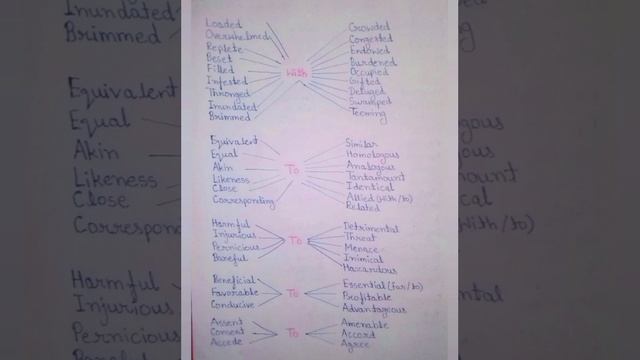 Loaded
Overwhelmed
Replete
Beset
Filled
Infested
Thronged
Inundated
Brimmed
With
Crowded
Congested
Endowed
Burdened
Occupied
Gifted
Deluged
Swamped
Teeming
Equivalent
Equal
Akin
Likeness
Close
Corresponding
To
Similar
Homologous
Analogous
Tantamount
Identical
Allied (with/to)
Related
Harmful
Injurious
Pernicious
Baneful
To
Detrimental
Threat
Menace
Inimical
Hazardous
Beneficial
Favorable
Conducive
To
Essential (for/to)
Profitable
Advantageous
Assent
Consent
Accede
To
Amenable
Accord
Agree